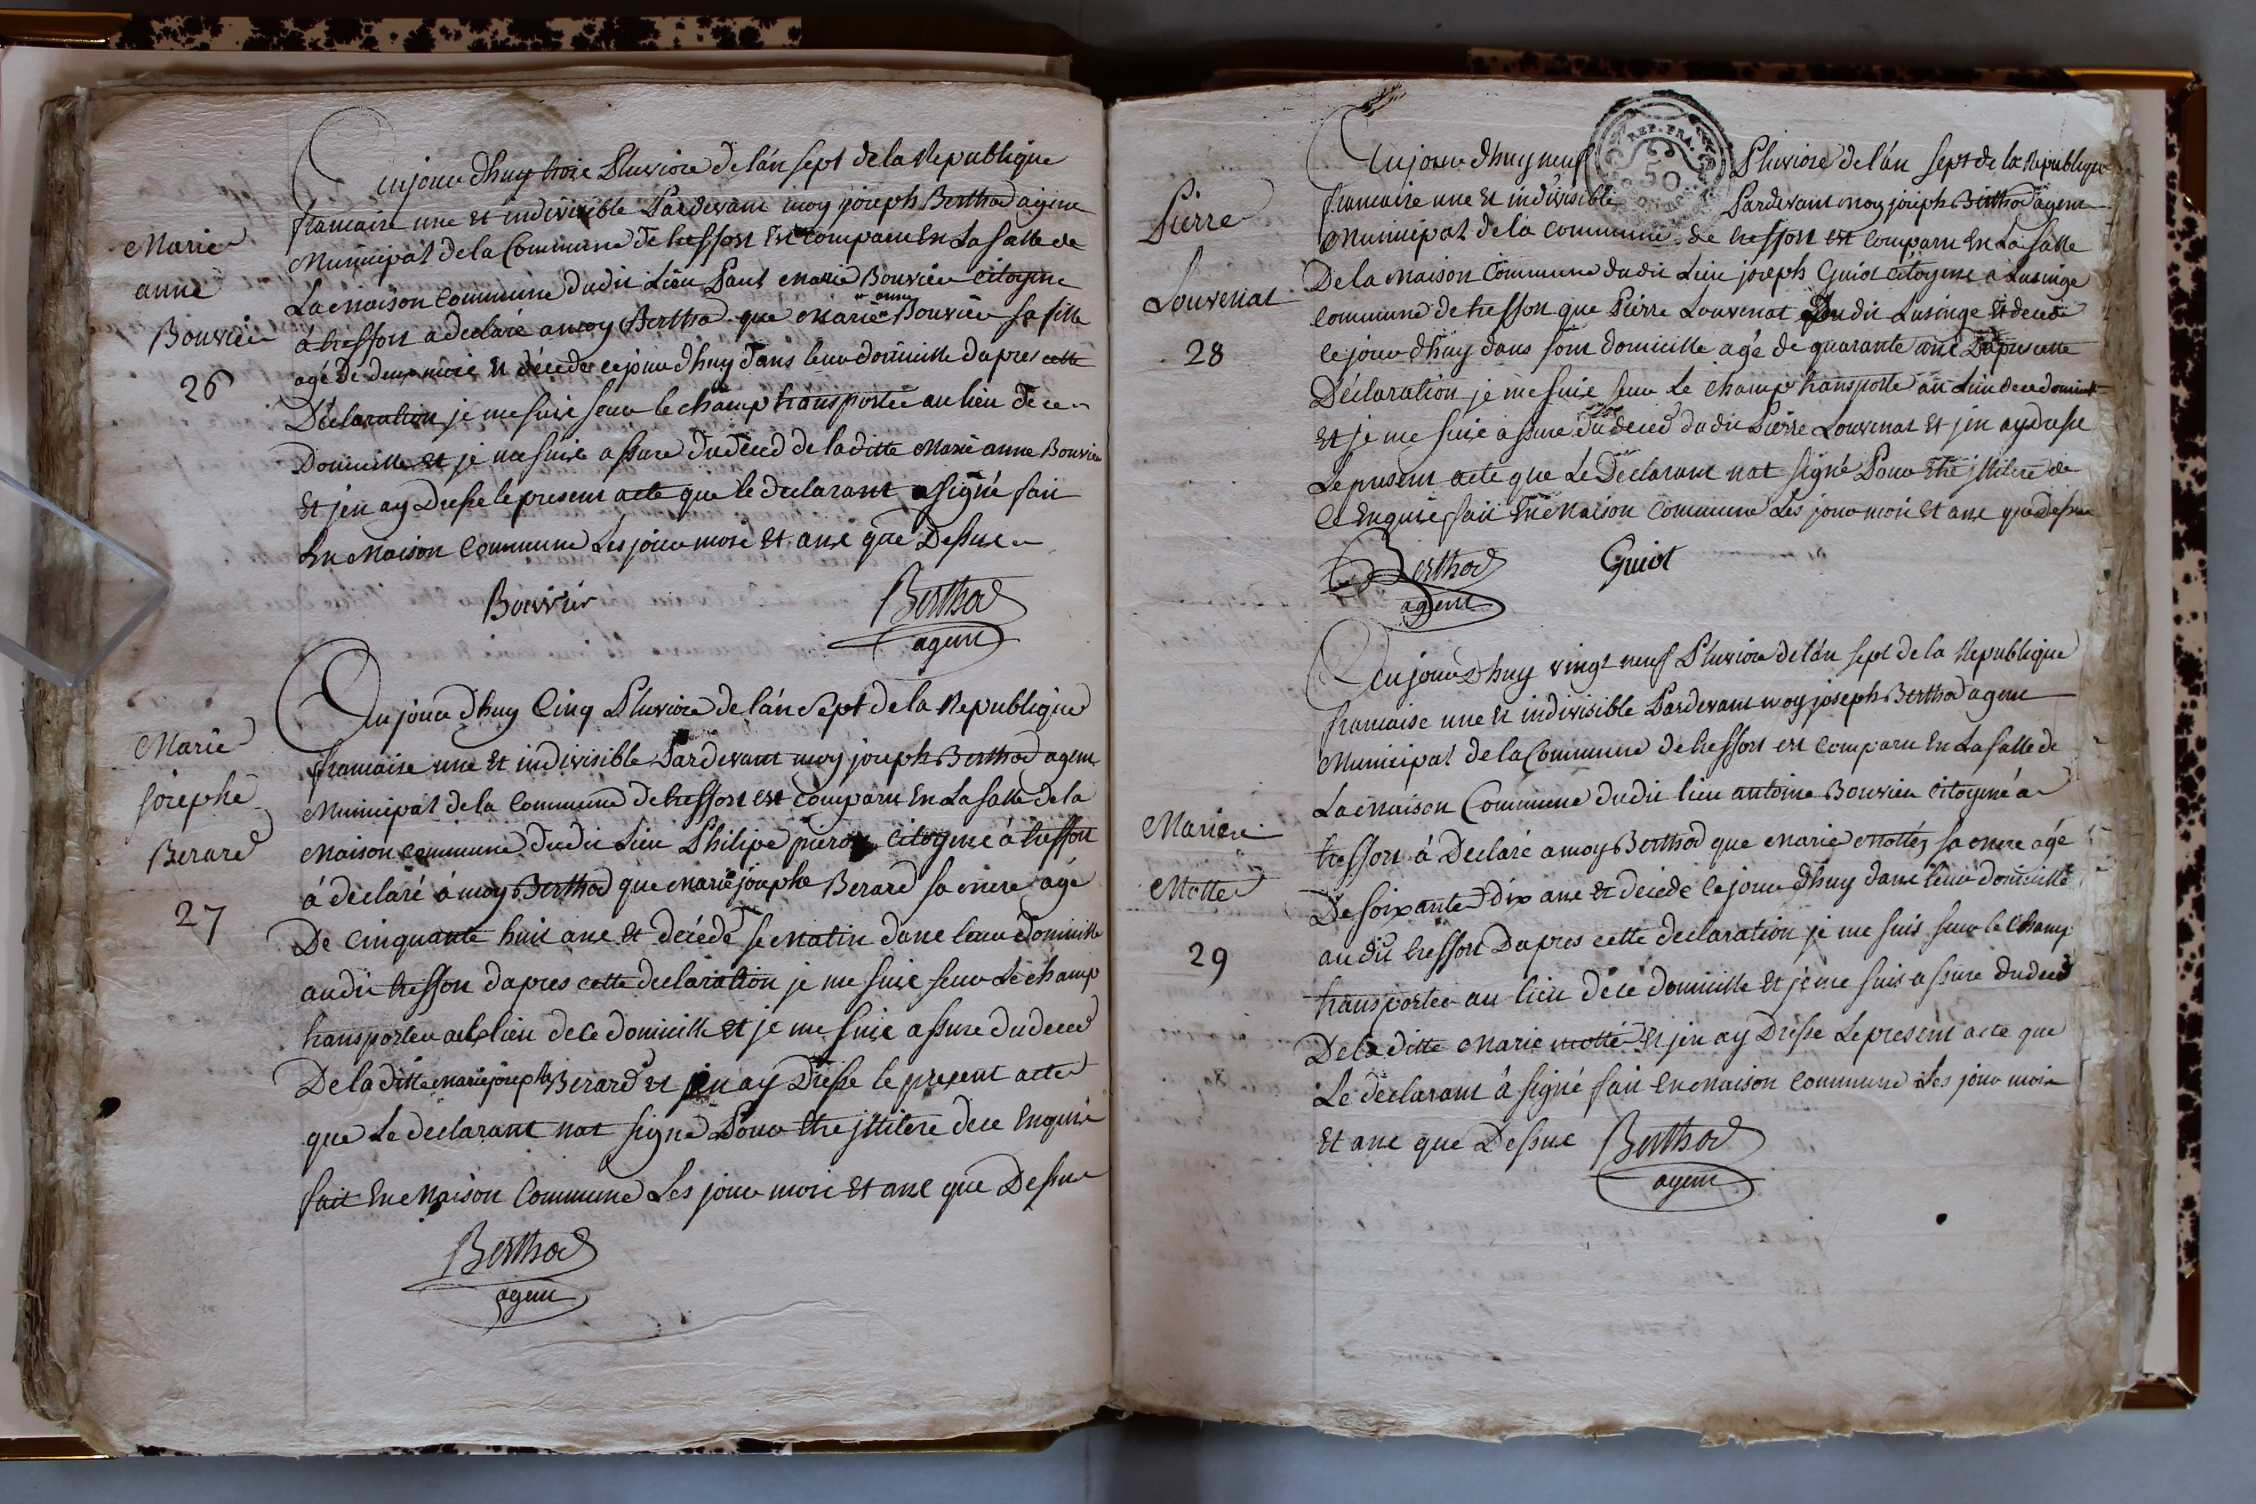 Marie
anne
Bouvier
26
Aujourdhuy trois Pluviose de l'an sept de la Republique
francaise une et indivisible Pardevant moy joseph Berthod agent
Municipal de la Commune de treffort est comparu En La Salle de
La Maison Commune dudit Lieu Paul Marie Bouvier citoyen
á treffort a declaré amoy Berthod que Marie anne Bouvier sa fille
agé De deux mois et décedée cejourdhuy dans leur domicille dapres cette
Déclaration je me suis seur le champ transportée au lieu de ce
Domicille et je me suis assure du deced de la ditte Marie anne Bouvier
et jen ay Dresse le present acte que le declarant a signé fait
En Maison Commune Les jour mois et ans que Dessus
Bouvier
Berthod
agent
Marie
josephe
Berard
27
Aujourdhuy Cinq Pluviose de l'an Sept de la Republique
francaise une et indivisible Pardevant moy joseph Berthod agent
Municipal de la Commune de treffort est comparu En La Salle de la
Maison commune dudit Lieu Philipe pieron citoyene á treffort
á déclaré á moy Berthod que Marie josephe Berard sa mere agé
De cinquante huit ans et décédé se matin dans leur domicille
audit treffort dapres cette declaration je me suis seur Le champ
transporter au lieu de ce domicille et je me suis assure du deced
De la ditte Marie josephe Berard et jen ay Dresse le present acte
que Le declarant nat signe Pour Etre jllitere de ce Enquis
fait En Maison Commune Les jour mois et ans que Dessus
Berthod
agent
Pierre
Louvenat
28
REP. FRA.
50
Aujourdhuy neuf Pluviose de l'án sept de la Republique
francaise une et indivisible Pardevant moy joseph Berthod agent
Municipal de la Commune de treffort est comparu En La Salle
De la Maison Commune dudit Lieu joseph Guiot citoyene a Lusinge
Commune de treffort que Pierre Louvenat dudit Lusinge et decedé
cejourdhuy dans sont domicille agé de quarante ans Dapres cette
Déclaration je me suis seur Le champ transporté au Lieu de ce domicille
et je me suis assure du deced dudit Pierre Louvenat et jen ay dresse
Le present acte que Le Déclarant nat signé Pour Etre jllitere de
ce Enquis fait En Maison Commune Les jour mois et ans que Dessus
Berthod
agent
Guiot
Marie
Motte
29
Aujourdhuy vingt neuf Pluviose de l'án sept de la Republique
francaise une et indivisible Pardevant moy joseph Berthod agent
Municipal de la Commune de treffort est comparu En La Salle de
La Maison Commune dudit lieu antoine Bouvier citoyené á
treffort á Declaré a moy Berthod que Marie Motte sa mere agé
De soixante dix ans et décédé cejourdhuy dans leur domicille
au dit treffort Dapres cette declaration je me suis seur le Champ
transporter au lieu de ce domicille et je me suis assure du deced
De la ditte Marie motte et jen ay Dresse Le present acte que
Le declarant á signé fait En Maison Commune Les jour mois
et ans que Dessus
Berthod
agent